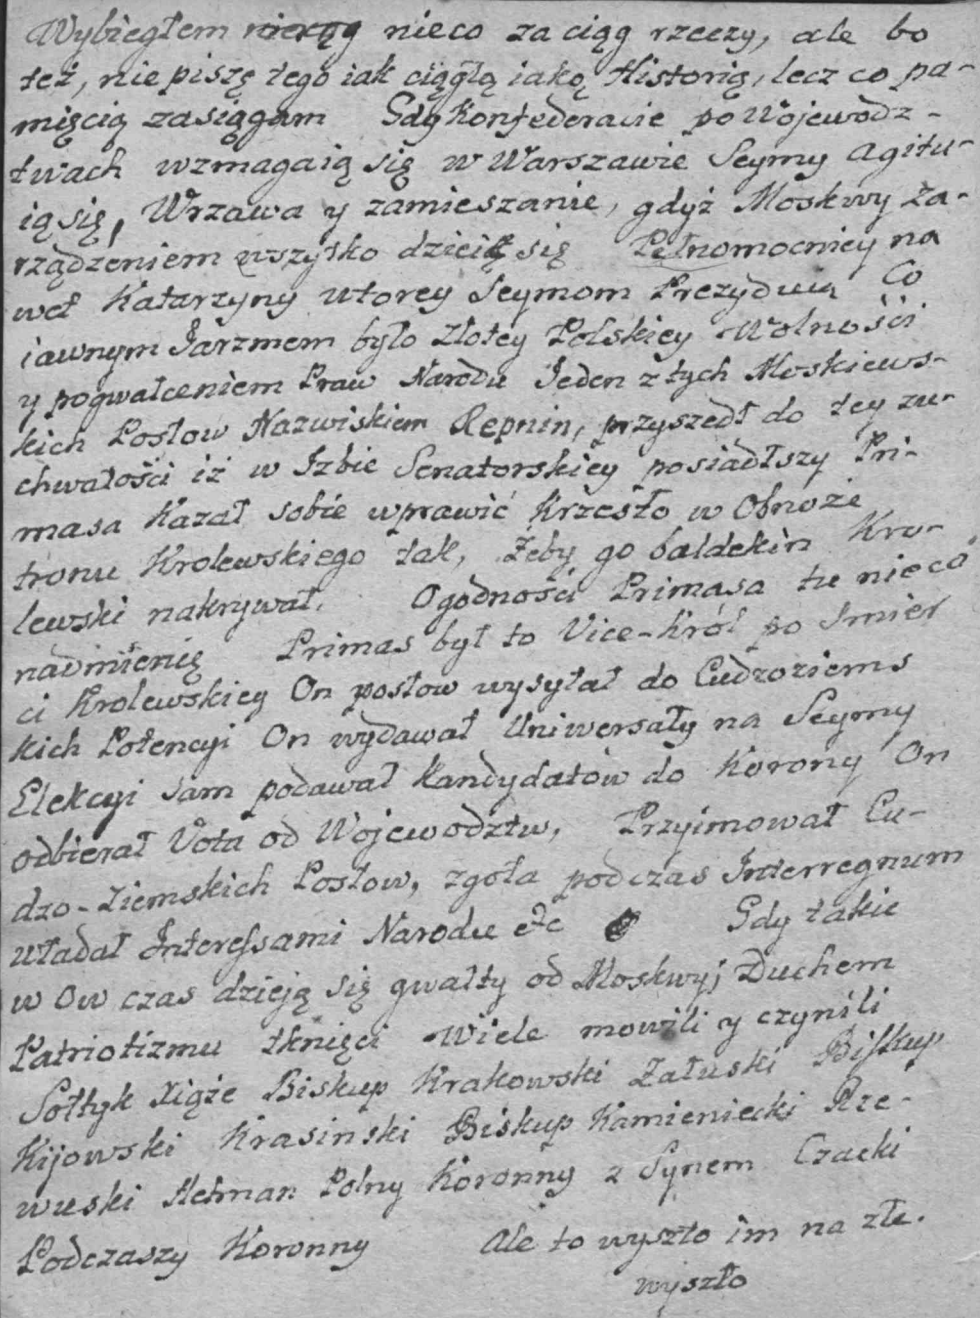 Wybiegłem nieco za ciąg rzeczy, ale bo
też, nie piszę tego iak ciągłą iaką Historią, lecz co pa-
mięcią zasięgam Gdy Konfederacie po Wojewodz-
twach wzmagaią się w Warszawie Seymy agitu-
ią się, Wrzawa y zamieszanie, gdyż Moskwy za-
rządzeniem wszysko dzieię się Pełnomocnicy na
wet Katarzyny wtorey Seymom Prezyduią Co
iawnym Jarzmem było Złotey Polskiey Wolności
y pogwałceniem Praw Narodu Jeden z tych Moskiews-
kich Posłow Nazwiskiem Repnin, przyszedł do tey zu-
chwałości iż w Izbie Senatorskiey posiadłszy Pri-
masa Kazał sobie wprawić Krzesło w Obnoże
tronu Krolewskiego tak, żeby go baldekin Kro-
lewski nakrywał. O godności Primasa tu nieco
nadmienię Primas był to Vice-Król po Smier
ci Krolewskiey On posłow wysyłał do Cudzoziems
kich Potencyi On wydawał Uniwersały na Seymy
Elekcyi sam podawał Kandydatow do Korony On
odbierał Vota od Wojewodztw, Przyimował Cu-
dzo-Ziemskich Posłow, zgoła podczas Interregnum
władał Interessami Narodu &c Gdy takie
w Ow czas dzieją się gwałty od Moskwy; Duchem
Patriotizmu tknięci Wiele mowili y czynili
Sołtyk Xiąże Biskup Krakowski Załuski Biskup
Kijowski Krasinski Biskup Kamieniecki Rze-
wuski Hetman Polny Koronny z Synem Czacki
Podczaszy Koronny Ale to wyszło im na złe.
wyszło